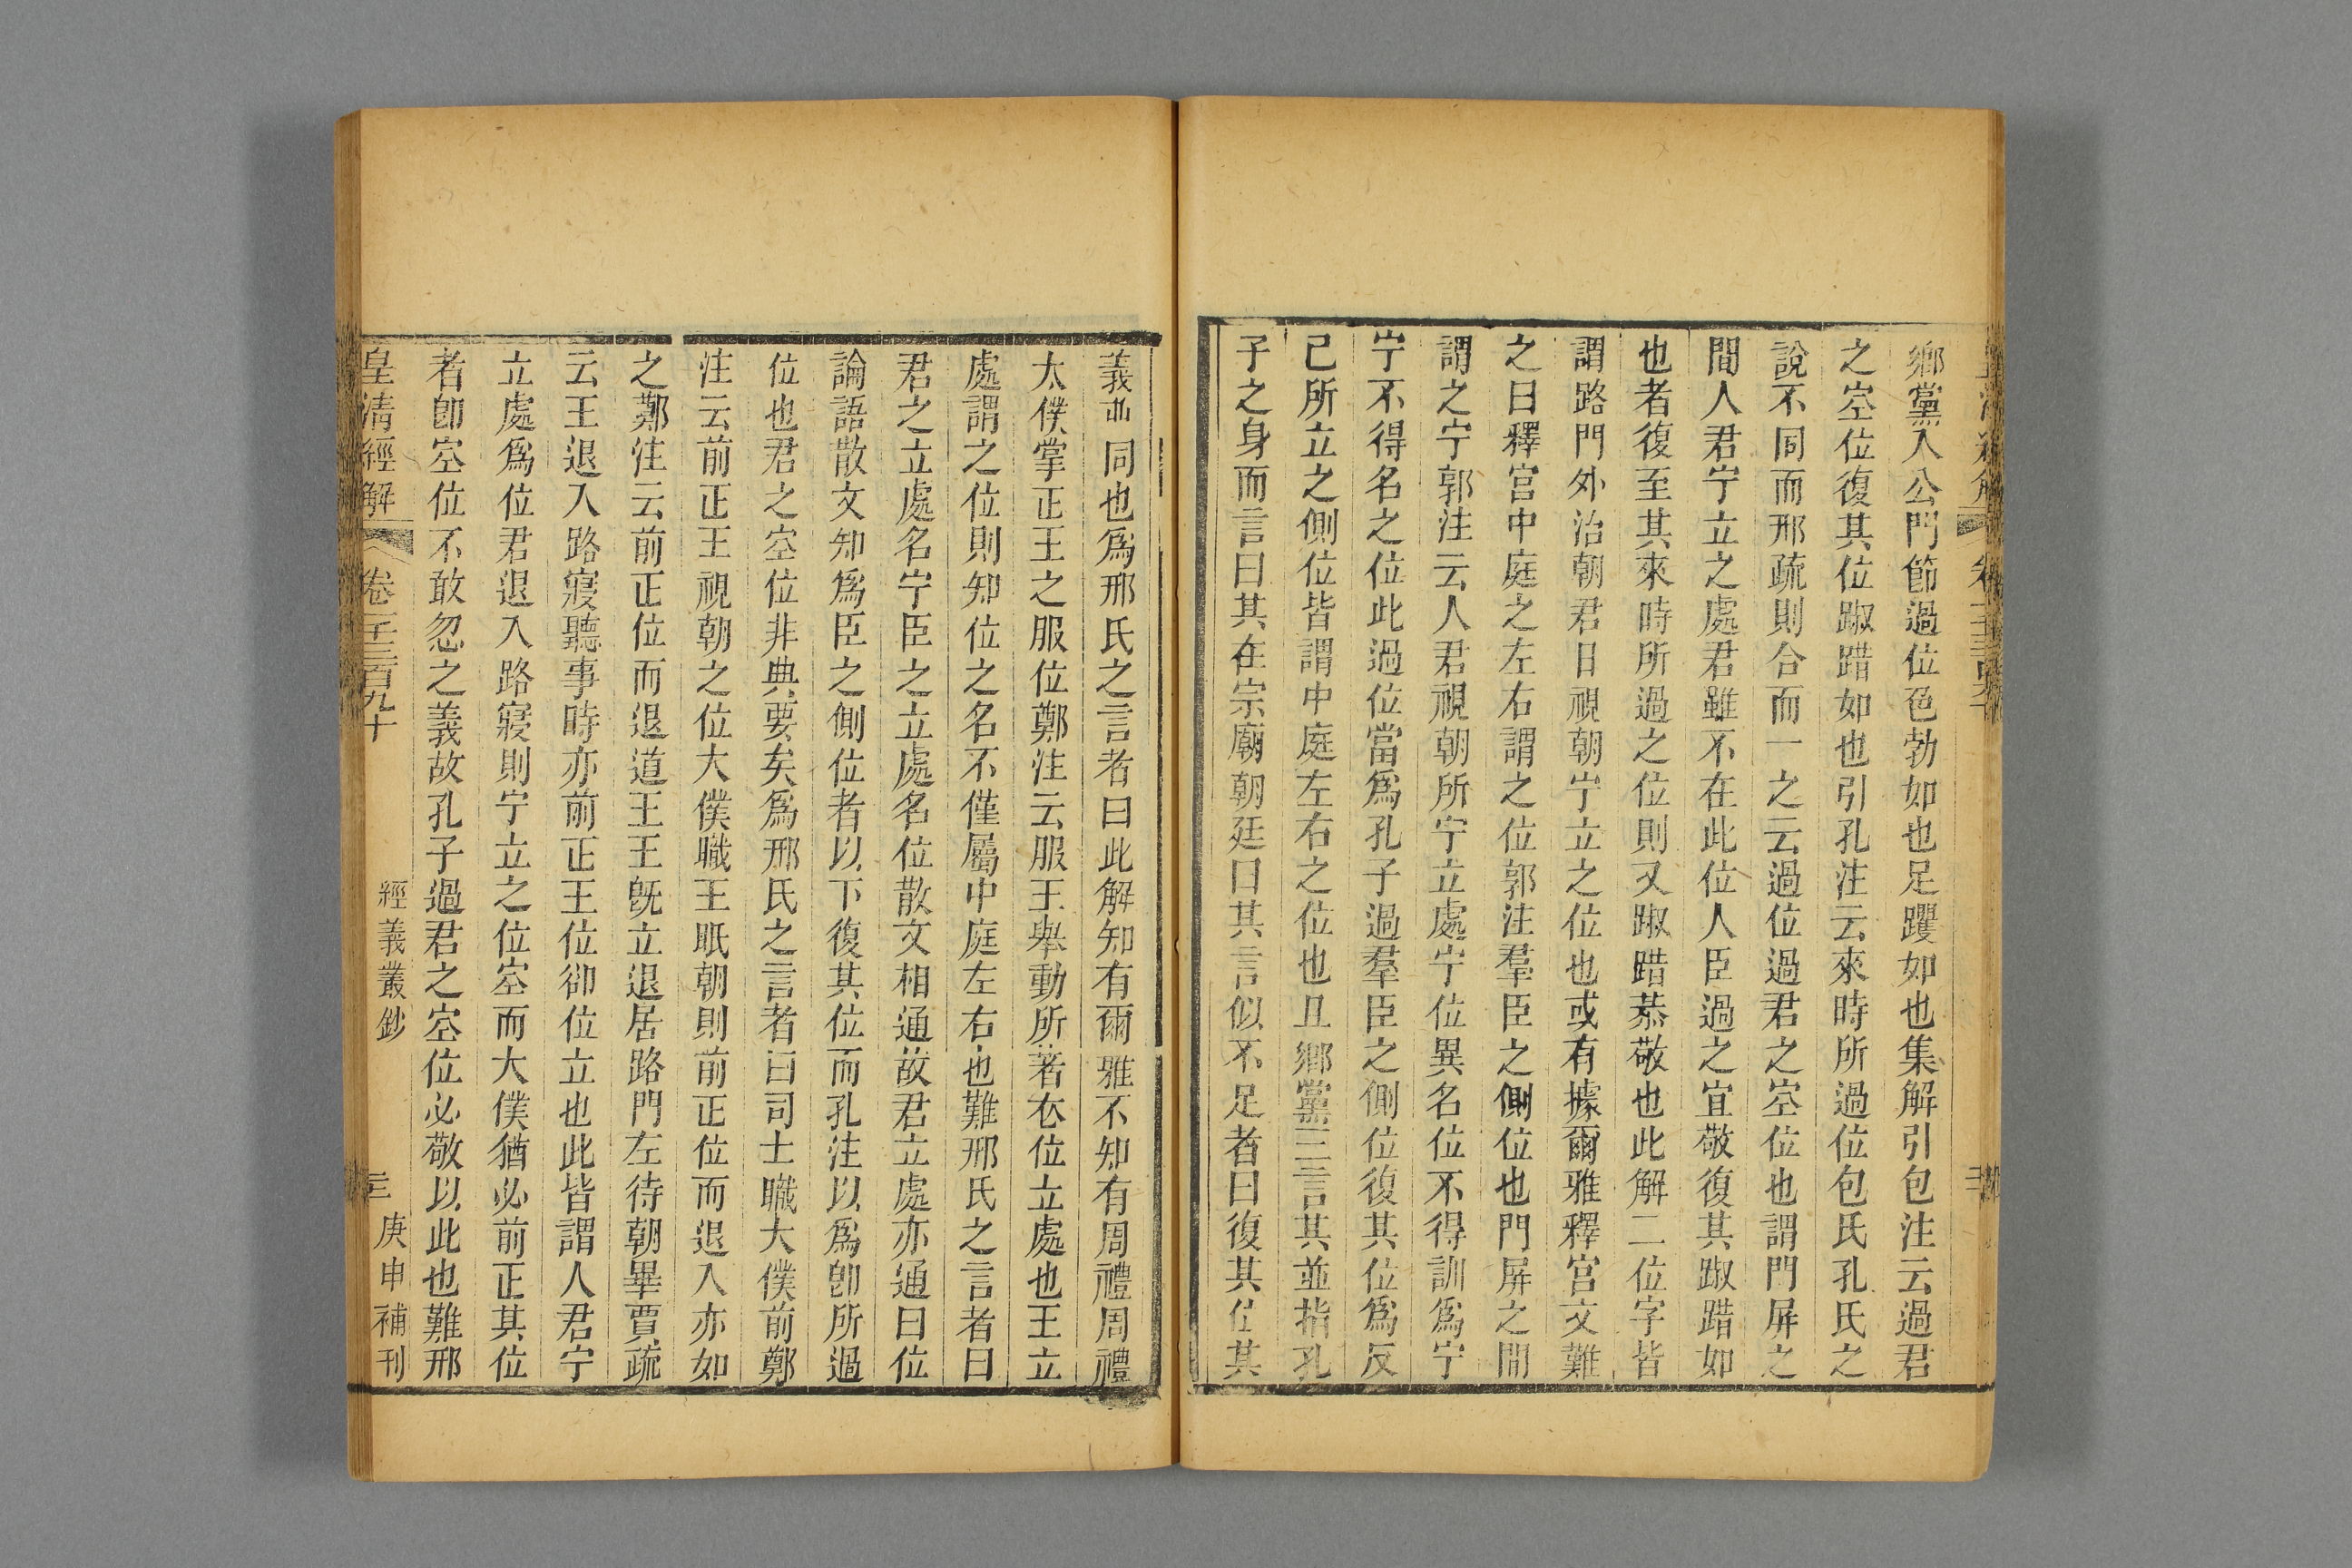 鄉黨入公門節過位色勃如也足躩如也集解引包注云過君
之空位復其位踧踖如也引孔注云來時所過位包氏孔氏之
說不同而邢疏則合而一之云過位過君之空位也謂門屏之
間人君宁立之處君雖不在此位人臣過之宜敬復其踧踖如
也者復至其來時所過之位則又踧踖恭敬也此解二位字皆
謂路門外治朝君日視朝宁立之位也或有據爾雅釋宮文難
之曰釋宮中庭之左右謂之位郭注羣臣之側位也門屏之間
謂之宁郭注云人君視朝所宁立處宁位異名位不得訓爲宁
宁不得名之位此過位當爲孔子過羣臣之側位復其位爲反
己所立之側位皆謂中庭左右之位也且鄉黨三言其並指孔
子之身而言曰其在宗廟朝廷曰其言似不足者曰復其位其
義並同也爲邢氏之言者曰此解知有爾雅不知有周禮周禮
太僕掌正王之服位鄭注云服王舉動所著衣位立處也王立
處謂之位則知位之名不僅屬中庭左右也難邢氏之言者曰
君之立處名宁臣之立處名位散文相通故君立處亦通曰位
論語散文知爲臣之側位者以下復其位而孔注以爲卽所過
位也君之空位非典要矣爲邢氏之言者曰司士職大僕前鄭
注云前正王視朝之位大僕職王眂朝則前正位而退入亦如
之鄭注云前正位而退道王王旣立退居路門左待朝畢賈疏
云王退入路寢聽事時亦前正王位卻位立也此皆謂人君宁
立處爲位君退入路寢則宁立之位空而大僕猶必前正其位
者卽空位不敢忽之義故孔子過君之空位必敬以此也難邢
皇淸經解 卷一千三百九十 經義叢鈔 三 庚申補刊